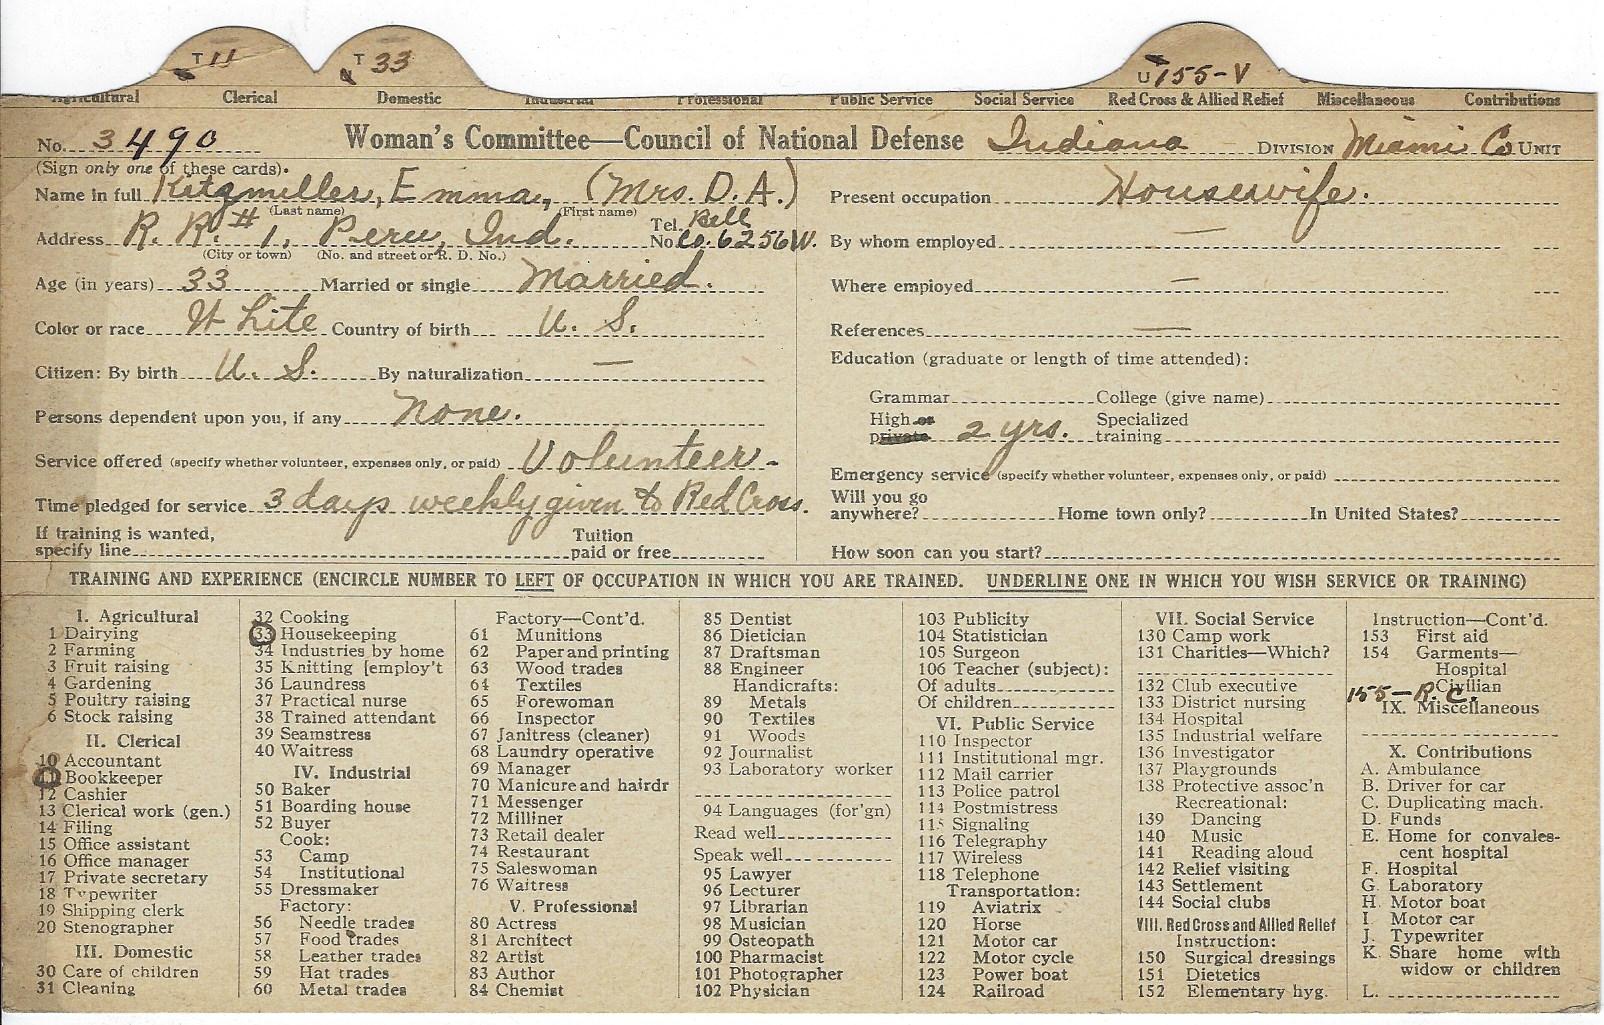 T 11 T 33 U 155-V
Agricultural Clerical Domestic Industrial Professional Public Service Social Service Red Cross & Allied Relief Miscellaneous Contributions
No. 3490 Woman's Committee—Council of National Defense Indiana DIVISION Miami Co UNIT
(Sign only one of these cards).
Name in full Kitzmiller, Emma, (Mrs. D. A.)
(Last name) (First name)
Address R. R. # 1, Peru, Ind. Tel. No. Bell Co. 6256W.
(City or town) (No. and street or R. D. No.)
Age (in years) 33 Married or single Married.
Color or race White Country of birth U. S.
Citizen: By birth U. S. By naturalization —
Persons dependent upon you, if any None.
Service offered (specify whether volunteer, expenses only, or paid) Volunteer-
Time pledged for service 3 days weekly given to Red Cross.
If training is wanted,
specify line Tuition paid or free
Present occupation Housewife.
By whom employed —
Where employed —
References —
Education (graduate or length of time attended):
Grammar College (give name)
High or private 2 yrs. Specialized training
Emergency service (specify whether volunteer, expenses only, or paid)
Will you go
anywhere? Home town only? In United States?
How soon can you start?
TRAINING AND EXPERIENCE (ENCIRCLE NUMBER TO LEFT OF OCCUPATION IN WHICH YOU ARE TRAINED. UNDERLINE ONE IN WHICH YOU WISH SERVICE OR TRAINING)
I. Agricultural
1 Dairying
2 Farming
3 Fruit raising
4 Gardening
5 Poultry raising
6 Stock raising
II. Clerical
10 Accountant
11 Bookkeeper
12 Cashier
13 Clerical work (gen.)
14 Filing
15 Office assistant
16 Office manager
17 Private secretary
18 Typewriter
19 Shipping clerk
20 Stenographer
III. Domestic
30 Care of children
31 Cleaning
32 Cooking
33 Housekeeping
34 Industries by home
35 Knitting [employ't
36 Laundress
37 Practical nurse
38 Trained attendant
39 Seamstress
40 Waitress
IV. Industrial
50 Baker
51 Boarding house
52 Buyer
Cook:
53 Camp
54 Institutional
55 Dressmaker
Factory:
56 Needle trades
57 Food trades
58 Leather trades
59 Hat trades
60 Metal trades
Factory—Cont'd.
61 Munitions
62 Paper and printing
63 Wood trades
64 Textiles
65 Forewoman
66 Inspector
67 Janitress (cleaner)
68 Laundry operative
69 Manager
70 Manicure and hairdr
71 Messenger
72 Milliner
73 Retail dealer
74 Restaurant
75 Saleswoman
76 Waitress
V. Professional
80 Actress
81 Architect
82 Artist
83 Author
84 Chemist
85 Dentist
86 Dietician
87 Draftsman
88 Engineer
Handicrafts:
89 Metals
90 Textiles
91 Woods
92 Journalist
93 Laboratory worker
94 Languages (for'gn)
Read well
Speak well
95 Lawyer
96 Lecturer
97 Librarian
98 Musician
99 Osteopath
100 Pharmacist
101 Photographer
102 Physician
103 Publicity
104 Statistician
105 Surgeon
106 Teacher (subject):
Of adults
Of children
VI. Public Service
110 Inspector
111 Institutional mgr.
112 Mail carrier
113 Police patrol
114 Postmistress
115 Signaling
116 Telegraphy
117 Wireless
118 Telephone
Transportation:
119 Aviatrix
120 Horse
121 Motor car
122 Motor cycle
123 Power boat
124 Railroad
VII. Social Service
130 Camp work
131 Charities—Which?
132 Club executive
133 District nursing
134 Hospital
135 Industrial welfare
136 Investigator
137 Playgrounds
138 Protective assoc'n
Recreational:
139 Dancing
140 Music
141 Reading aloud
142 Relief visiting
143 Settlement
144 Social clubs
VIII. Red Cross and Allied Relief
Instruction:
150 Surgical dressings
151 Dietetics
152 Elementary hyg.
Instruction—Cont'd.
153 First aid
154 Garments—
Hospital
Civilian
155-R. C.
IX. Miscellaneous
X. Contributions
A. Ambulance
B. Driver for car
C. Duplicating mach.
D. Funds
E. Home for convales-
cent hospital
F. Hospital
G. Laboratory
H. Motor boat
I. Motor car
J. Typewriter
K. Share home with
widow or children
L.